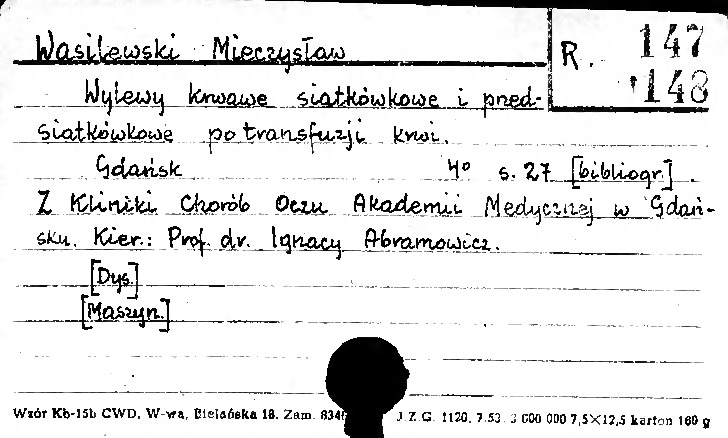 Wasilewski Mieczysław
R. 147
148
Wylewy krwawe siatkówkowe i przed-
siatkówkowe po transfuzji krwi.
Gdańsk 4° s. 27 [bibliogr.] .
Z Kliniki Chorób Oczu Akademii Medycznej w Gdań-
sku. Kier.: Prof. dr. Ignacy Abramowicz.
[Dys.]
[Maszyn.]
Wzór Kb-15b CWD, W-wa, Bielańska 18. Zam. J.Z.G. 1120. 7.53. 3 000 000 7,5×12,5 karton 160 g